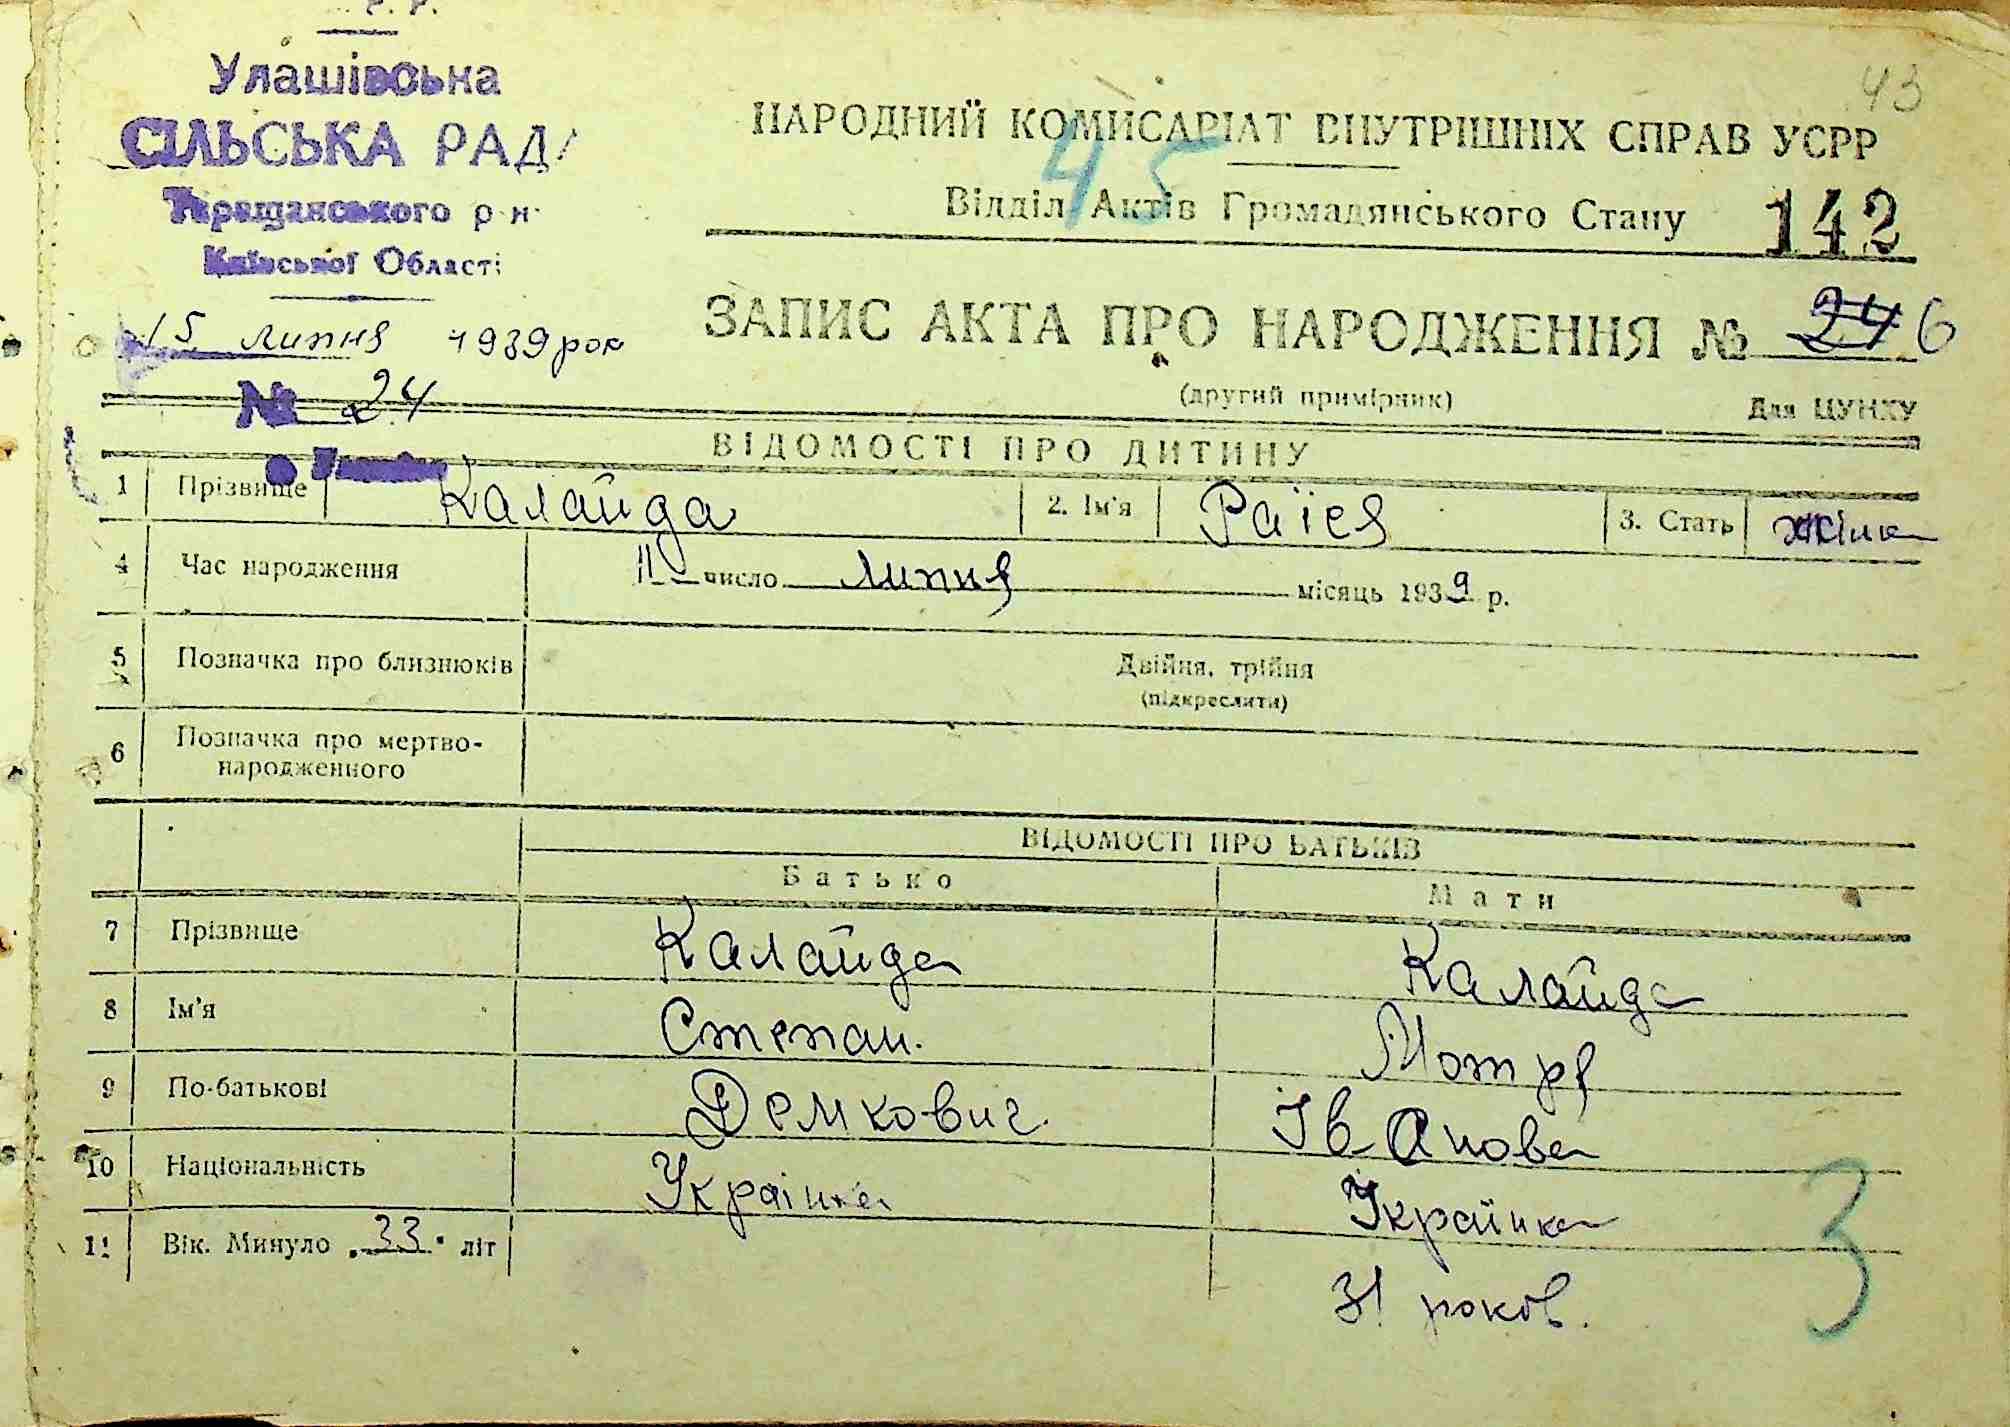 Р. Р.
Улашівська
СІЛЬСЬКА РАДА
Таращанського р-н
Київської Області
15 липня 1939 рок
№ 24
43
НАРОДНИЙ КОМИСАРІАТ ВНУТРІШНІХ СПРАВ УСРР
45
Відділ Актів Громадянського Стану 142
ЗАПИС АКТА ПРО НАРОДЖЕННЯ № 24 6
(другий примірник) Для ЦУНХУ
ВІДОМОСТІ ПРО ДИТИНУ
1 Прізвище Калайда 2. Ім'я Раїся 3. Стать жінка
4 Час народження 11 число липня місяць 1939 р.
5 Позначка про близнюків Двійня, трійня
(підкреслити)
6 Позначка про мертво-
народженного
ВІДОМОСТІ ПРО БАТЬКІВ
Батько Мати
7 Прізвище Калайда Калайда
8 Ім'я Степан. Мотря
9 По-батькові Демкович. Івановна
10 Національність Украінка Українка
11 Вік. Минуло 33 літ 31 роков.
3